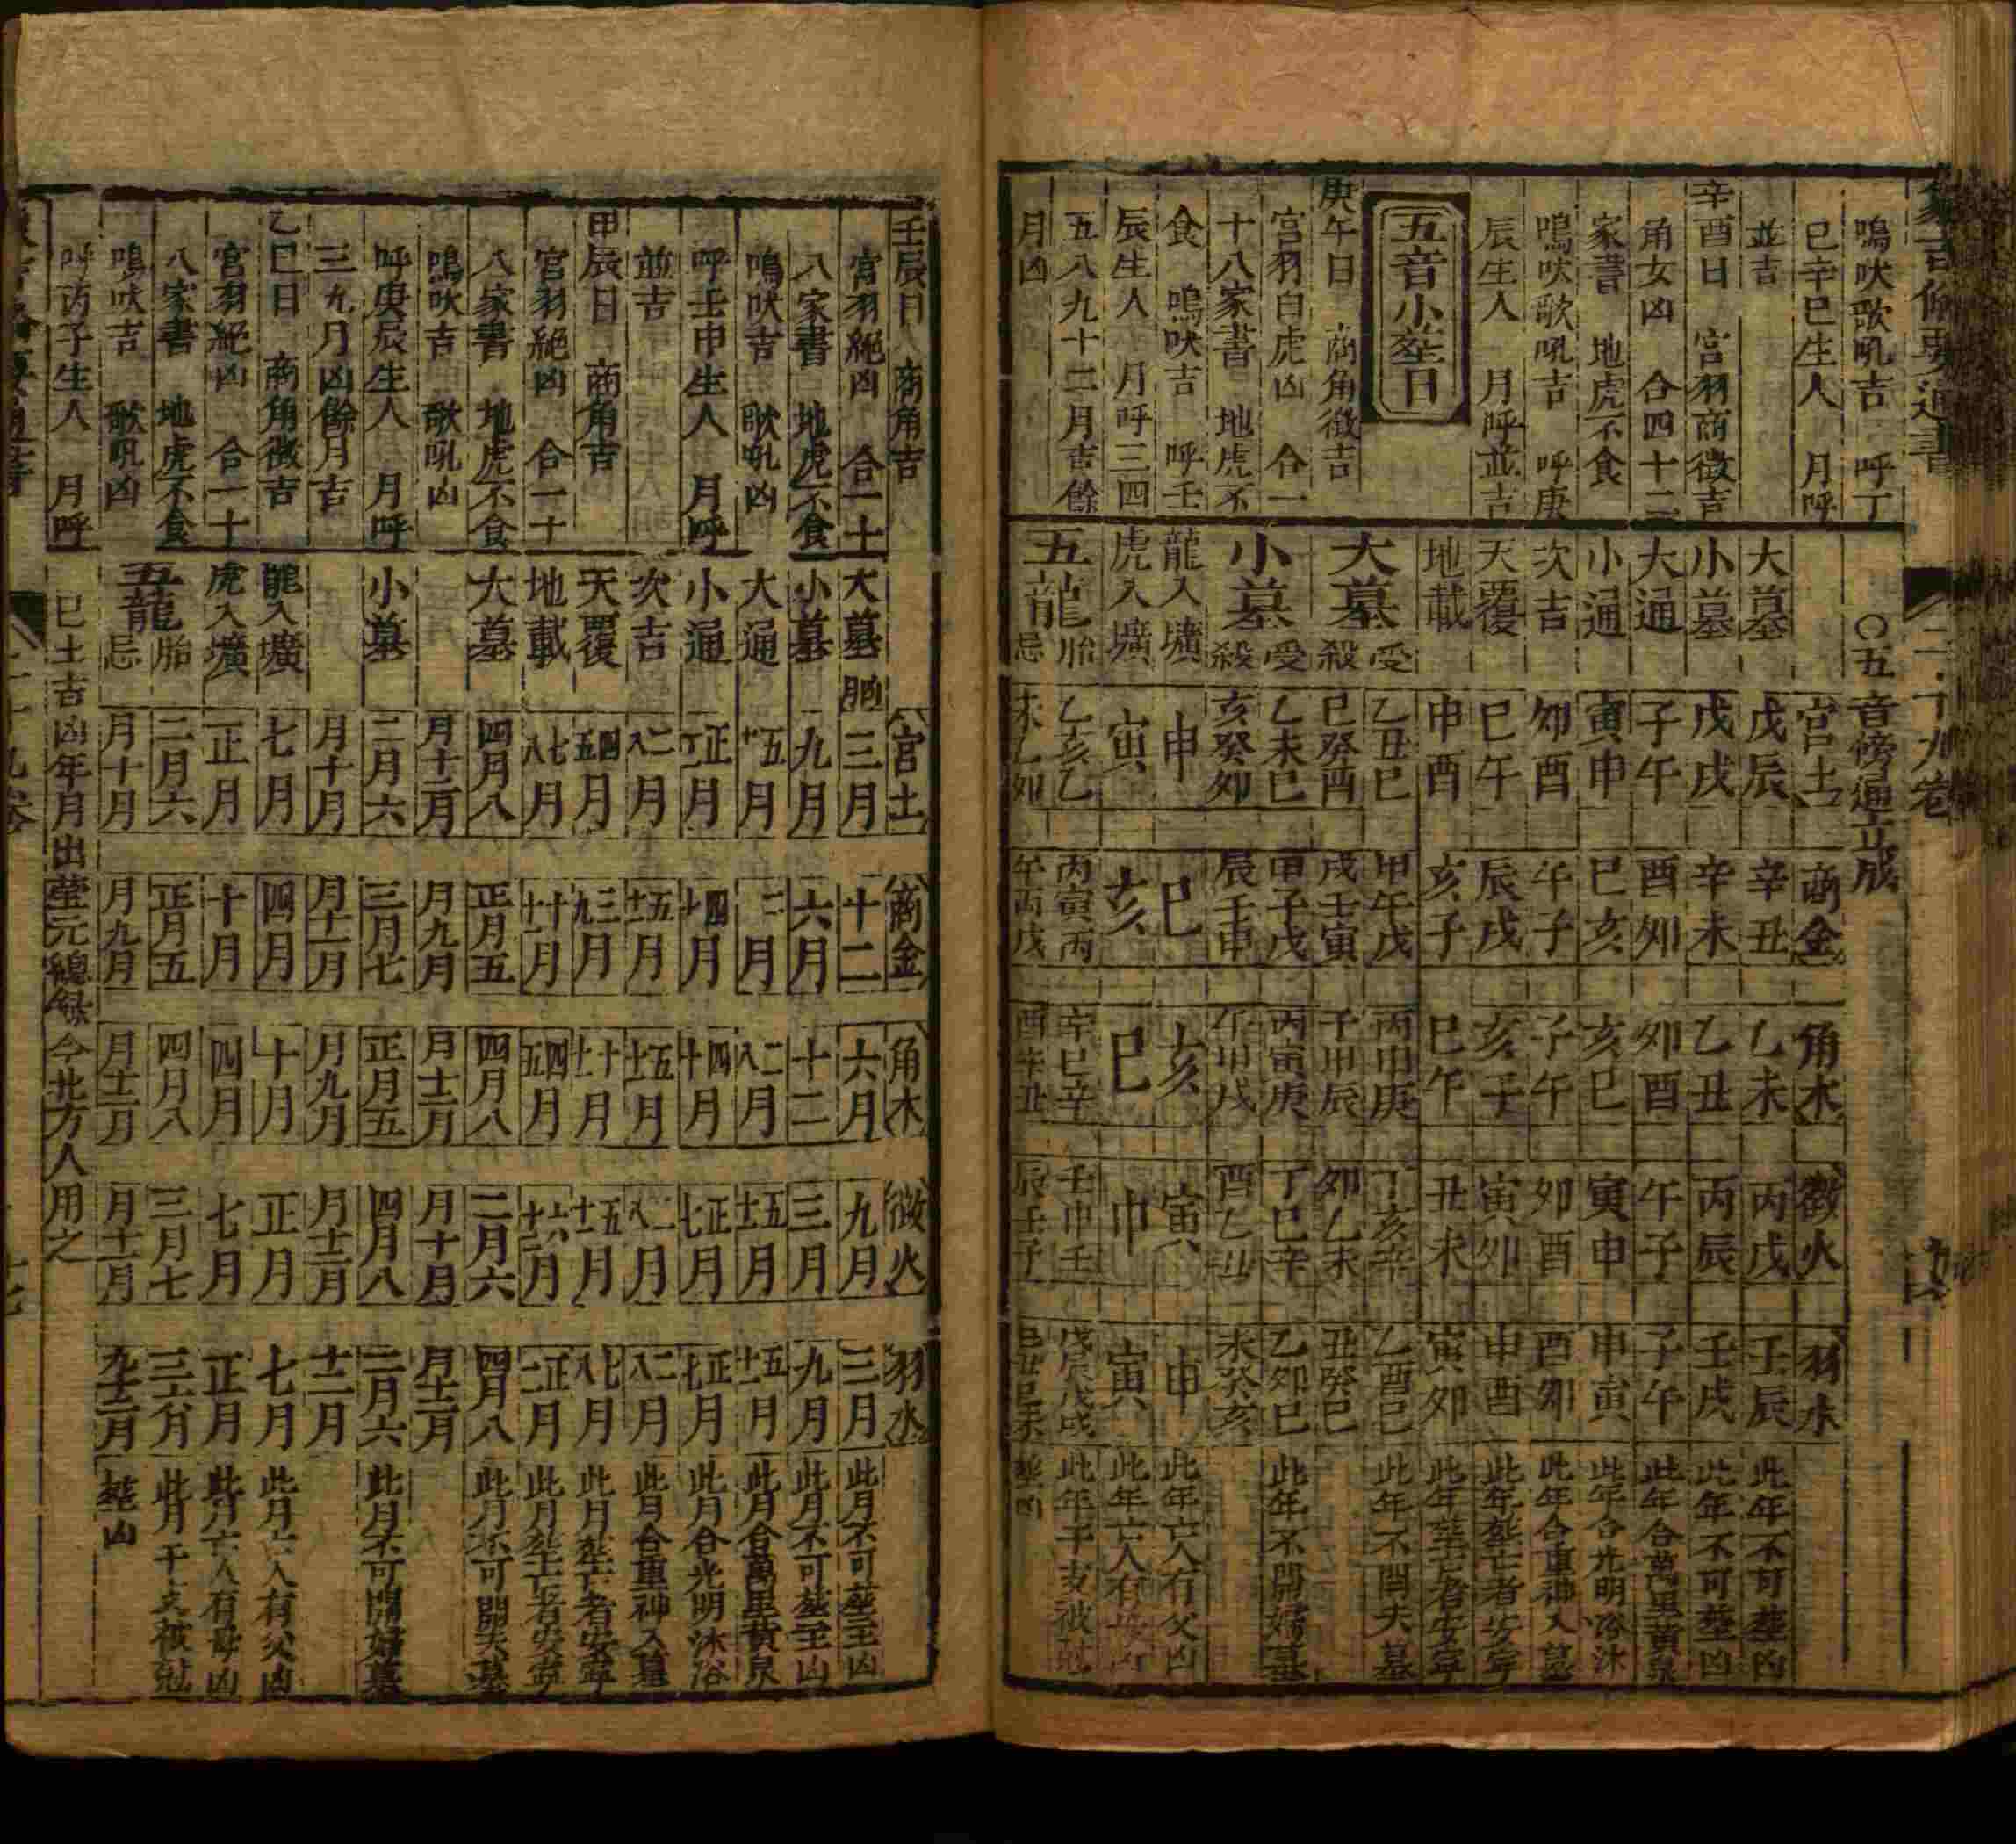 象吉備要通書
二十九卷
鳴吠歌吼吉 呼丁
巳辛巳生人 月呼
並吉
辛酉日 宮羽商徵吉
角女凶 合四十二
家書 地虎不食
鳴吠歌吼吉 呼庚
辰生人 月呼並吉
五音小塟日
庚午日 商角徵吉
宮羽白虎凶 合一
十八家書 地虎不
食 鳴吠吉 呼壬
辰生人 月呼三四
五八九十二月吉餘
月凶
〇五音傍通立成
宮土 商金 角木 徵火 羽水
大墓 戊辰 辛丑 乙未 丙戌 壬辰 此年不可塟凶
小墓 戊戌 辛未 乙丑 丙辰 壬戌 此年不可塟凶
大通 子午 酉卯 卯酉 午子 子午 此年合萬里黃泉
小通 寅申 巳亥 亥巳 寅申 申寅 此年合光明浴沐
次吉 卯酉 午子 子午 卯酉 酉卯 此年合重神入墓
天覆 巳午 辰戌 亥子 寅卯 申酉 此年塟亡者安寧
地載 申酉 亥子 巳午 丑未 寅卯 此年塟亡者安寧
大墓受殺 乙丑巳 甲午戊 丙申庚 丁亥辛 乙酉己 此年不開大墓
巳癸酉 戌壬寅 子甲辰 卯乙未 丑癸巳
小墓受殺 乙未巳 甲子戊 丙寅庚 丁巳辛 乙卯巳 此年不開婦墓
亥癸卯 辰壬申 午甲戌 酉乙丑 未癸亥
龍入壙 申 巳 亥 寅 申 此年亡人有父凶
虎入壙 寅 亥 巳 申 寅 此年亡人有母凶
五龍胎忌 乙亥乙 丙寅丙 辛巳辛 壬申壬 戊辰戊戌 此年干支被尅
未乙卯 午丙戌 酉辛丑 辰壬子 己丑己未 塟凶
壬辰日 商角吉
宮羽絕凶 合一十
八家書 地虎不食
鳴吠吉 歌吼凶
呼壬申生人 月呼
並吉
甲辰日 商角吉
宮羽絕凶 合一十
八家書 地虎不食
鳴吠吉 歌吼凶
呼庚辰生人 月呼
三九月凶餘月吉
乙巳日 商角徵吉
宮羽絕凶 合一十
八家書 地虎不食
鳴吠吉 歌吼凶
呼丙子生人 月呼
宮土 商金 角木 徵火 羽水
大墓 三月 十二 六月 九月 三月 此月不可塟主凶
小墓 九月 六月 十二 三月 九月 此月不可塟主凶
大通 五十一月 二月 二八月 五十一月 五十一月 此月合萬里黃泉
小通 正七月 四十月 四十月 正七月 正七月 此月合光明沐浴
次吉 二八月 五十一月 五十一月 二八月 二八月 此月合重神入墓
天覆 四五月 三九月 十十一月 五十一月 七八月 此月塟亡者安寧
地載 七八月 十十一月 四五月 六十二月 正二月 此月塟亡者安寧
大墓 四月八 正月五 四月八 二月六 四月八 此月不可開大墓
月十二月 月九月 月十二月 月十月 月十二月
小墓 二月六 三月七 正月五 四月八 二月六 此月不可開婦墓
月十月 月十一月 月九月 月十二月 十二月
龍入壙 七月 四月 十月 正月 七月 此月亡人有父凶
虎入壙 正月 十月 四月 七月 正月 此月亡人有母凶
五龍胎忌 二月六 正月五 四月八 三月七 三六月 此月干支被尅
月十月 月九月 月十二月 月十一月 九十二月 塟凶
巳上吉凶年月出塋元總錄今北方人用之